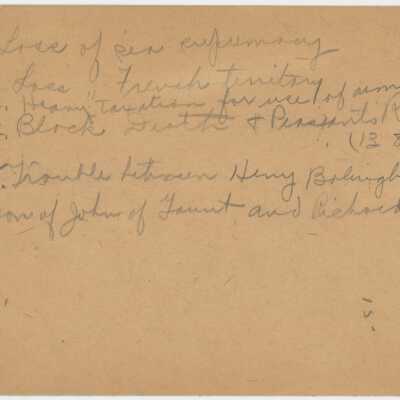 Loss of sea supremacy
Loss " French territory
Heavy Taxation for use of arm
Block Death & Peasants R
(13 8
Trouble between Henry Bolingb
son of John of Gaunt and Richard